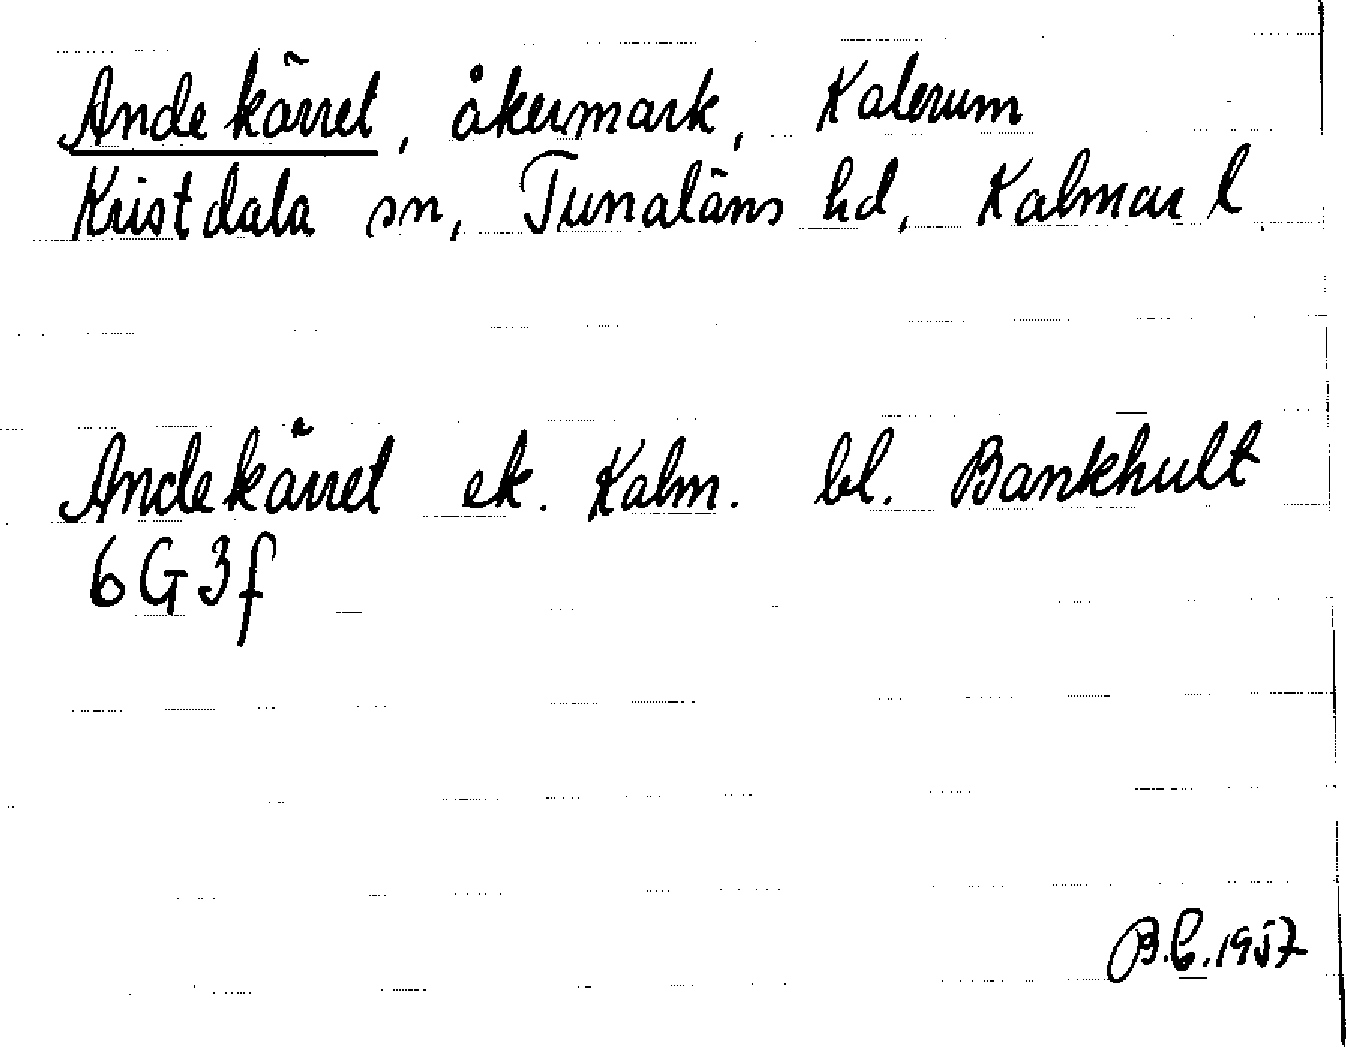 Andekärret, åkermark, Kalerum
Kristdala sn, Tunaläns hd, Kalmar l.
Andekärret ek. Kalm. bl. Bankhult
6G3f
B.C. 1957